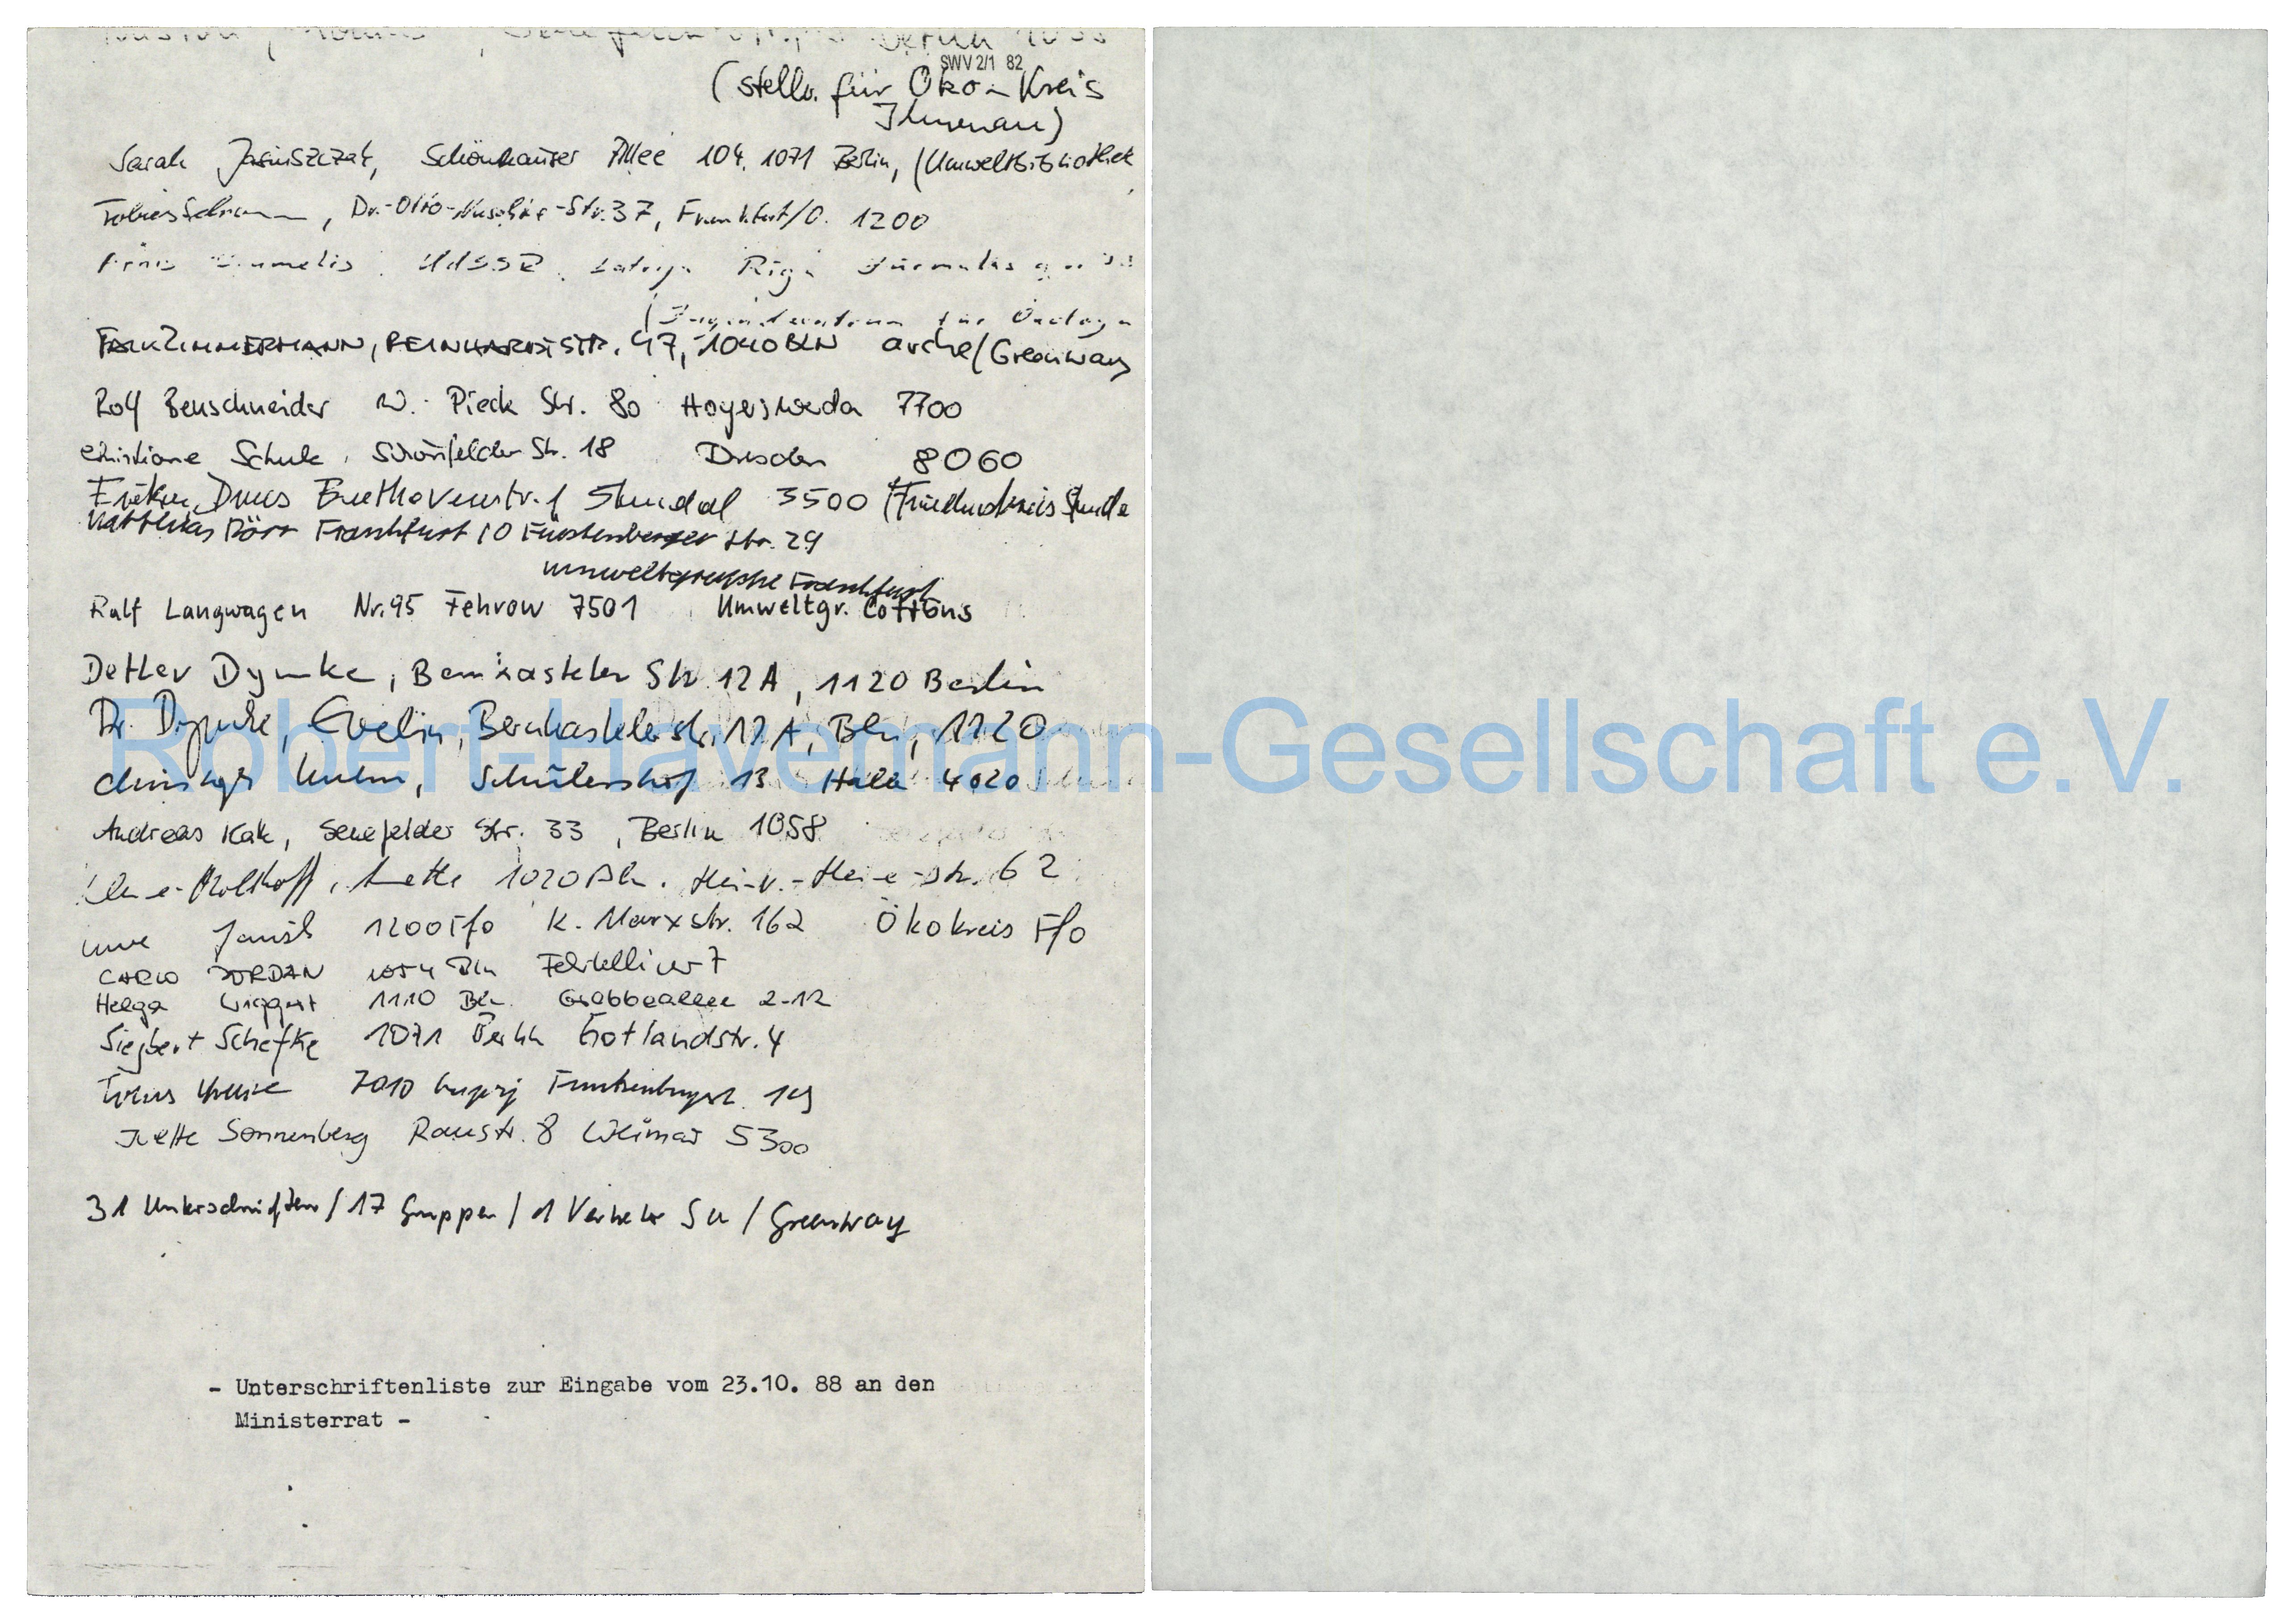 Berlin
SWV 2/1 82
(stellv. für Öko-Kreis
Ilmenau)
Sarah Jasinszczak, Schönhauser Allee 104, 1071 Berlin, (Umweltbibliothek
Tobias, Dr.-Otto-Nuschke-Str. 37, Frankfurt/O. 1200
UdSSR Riga
(Jugendzentrum für
FALK ZIMMERMANN, REINHARDTSTR. 47, 1040 BLN arche/Greenway
Rolf Benschneider W.-Pieck Str. 80 Hoyerswerda 7700
Christiane Schulz, Schönfelder Str. 18 Dresden 8060
Drews Beethovenstr. 1 Stendal 3500 (Friedenskreis Stenda
Matthias Dörr Frankfurt /O Fürstenberger Str. 29
Umweltgruppe Frankfurt
Ralf Langwagen Nr. 95 Fehrow 7501 Umweltgr. Cottbus
Detlev Dymke, Bernkasteler Str. 12A, 1120 Berlin
Dr. Dymke, Evelin, Bernkasteler Str. 12 A, Bln, 1120
Kuhn, Schülershof 13 Halle 4020
Andreas Kalk, Senefelder Str. 33, Berlin 1058
1020 Bln. Heinr.-Heine-Str. 62
Uwe 1200 F/o K. Marxstr. 162 Ökokreis F/o
CARLO JORDAN 1054 Bln Fehrbelliner 7
Helga 1110 Bln Grabbeallee 2-12
Siegbert Schefke 1071 Berlin Gotlandstr. 4
7010 Leipzig
Ivette Sonnenberg Raustr. 8 Weimar 5300
31 Unterschriften / 17 Gruppen / 1 Vertreter SU / Greenway
- Unterschriftenliste zur Eingabe vom 23.10. 88 an den
Ministerrat -
Robert-Havemann-Gesellschaft e.V.